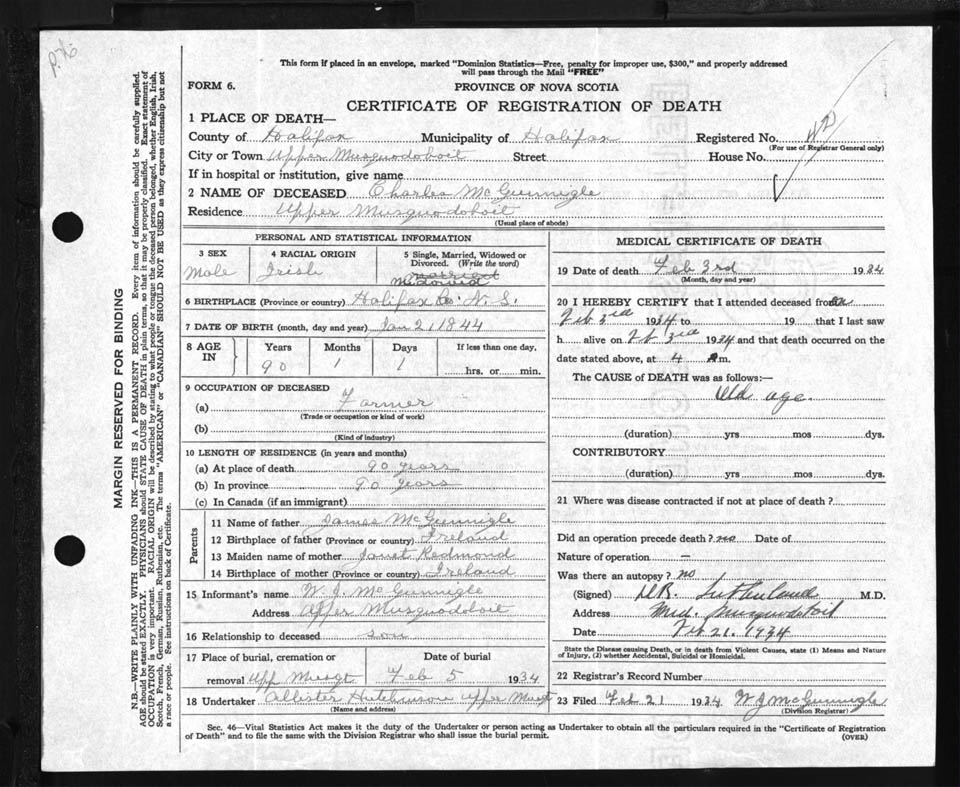 P. 76
This form if placed in an envelope, marked "Dominion Statistics—Free, penalty for improper use, $300," and properly addressed
will pass through the Mail "FREE"
FORM 6.
PROVINCE OF NOVA SCOTIA
CERTIFICATE OF REGISTRATION OF DEATH
1 PLACE OF DEATH—
County of Halifax Municipality of Halifax Registered No.
(For use of Registrar General only)
City or Town Upper Musquodoboit Street House No.
If in hospital or institution, give name
2 NAME OF DECEASED Charles McGunnigle
Residence Upper Musquodoboit
(Usual place of abode)
PERSONAL AND STATISTICAL INFORMATION
3 SEX 4 RACIAL ORIGIN 5 Single, Married, Widowed or
Divorced. (Write the word)
Male Irish married
Widowed
6 BIRTHPLACE (Province or country) Halifax Co. N. S.
7 DATE OF BIRTH (month, day and year) Jan 2, 1844
8 AGE IN Years Months Days If less than one day,
90 1 1 hrs. or min.
9 OCCUPATION OF DECEASED
(a) Farmer
(Trade or occupation or kind of work)
(b)
(Kind of industry)
10 LENGTH OF RESIDENCE (in years and months)
(a) At place of death 90 years
(b) In province 90 years
(c) In Canada (if an immigrant)
Parents
11 Name of father James McGunnigle
12 Birthplace of father (Province or country) Ireland
13 Maiden name of mother Janet Redmond
14 Birthplace of mother (Province or country) Ireland
15 Informant's name W. J. McGunnigle
Address Upper Musquodoboit
16 Relationship to deceased son
17 Place of burial, cremation or Date of burial
removal Upp Musqt Feb 5 1934
18 Undertaker Allister Hutchinson Upper Musqt
(Name and address)
MEDICAL CERTIFICATE OF DEATH
19 Date of death Feb 3rd 1934
(Month, day and year)
20 I HEREBY CERTIFY that I attended deceased from
Feb 3rd 1934 to 19 that I last saw
h alive on Feb 3rd 1934 and that death occurred on the
date stated above, at 4 A m.
The CAUSE of DEATH was as follows:—
Old age.
(duration) yrs mos dys.
CONTRIBUTORY
(duration) yrs mos dys.
21 Where was disease contracted if not at place of death?
Did an operation precede death? no Date of
Nature of operation —
Was there an autopsy? no
(Signed) D.R. Sutherland M.D.
Address Mid. Musquodoboit
Date Feb 21. 1934
State the Disease causing Death, or in death from Violent Causes, state (1) Means and Nature
of Injury, (2) whether Accidental, Suicidal or Homicidal.
22 Registrar's Record Number
23 Filed Feb 21 1934 W J McGunnigle
(Division Registrar)
Sec. 46—Vital Statistics Act makes it the duty of the Undertaker or person acting as Undertaker to obtain all the particulars required in the "Certificate of Registration
of Death" and to file the same with the Division Registrar who shall issue the burial permit.
(OVER)
MARGIN RESERVED FOR BINDING
N.B.—WRITE PLAINLY WITH UNFADING INK—THIS IS A PERMANENT RECORD. Every item of information should be carefully supplied.
AGE should be stated EXACTLY. PHYSICIANS should STATE CAUSE OF DEATH in plain terms, so that it may be properly classified. Exact statement of
OCCUPATION is very important. RACIAL ORIGIN will be described by stating to what people or tongue the deceased person belonged, whether English, Irish,
Scotch, French, German, Russian, Ruthenian, etc. The terms "AMERICAN" or "CANADIAN" SHOULD NOT BE USED as they express citizenship but not
a race or people. See instructions on back of Certificate.